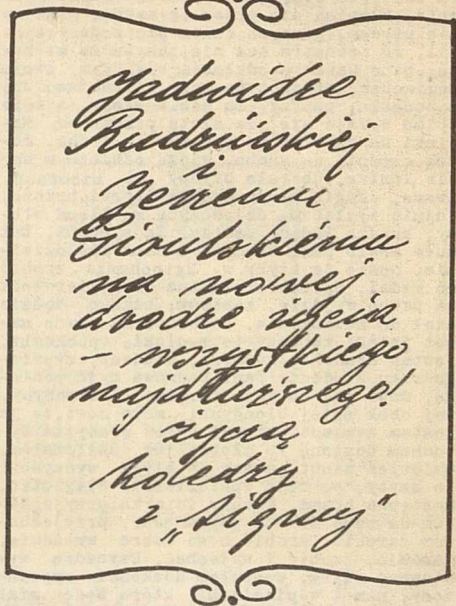 Jadwidze
Rudzińskiej
i
Jerzemu
Girulskiemu
na nowej
drodze życia
– wszystkiego
najdłuższego!
życzą
koledzy
z „Sigmy"